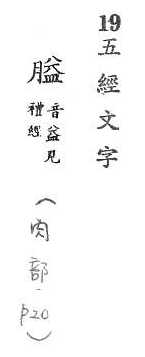 19五經文字
膉音益見禮經
（肉部．p20）